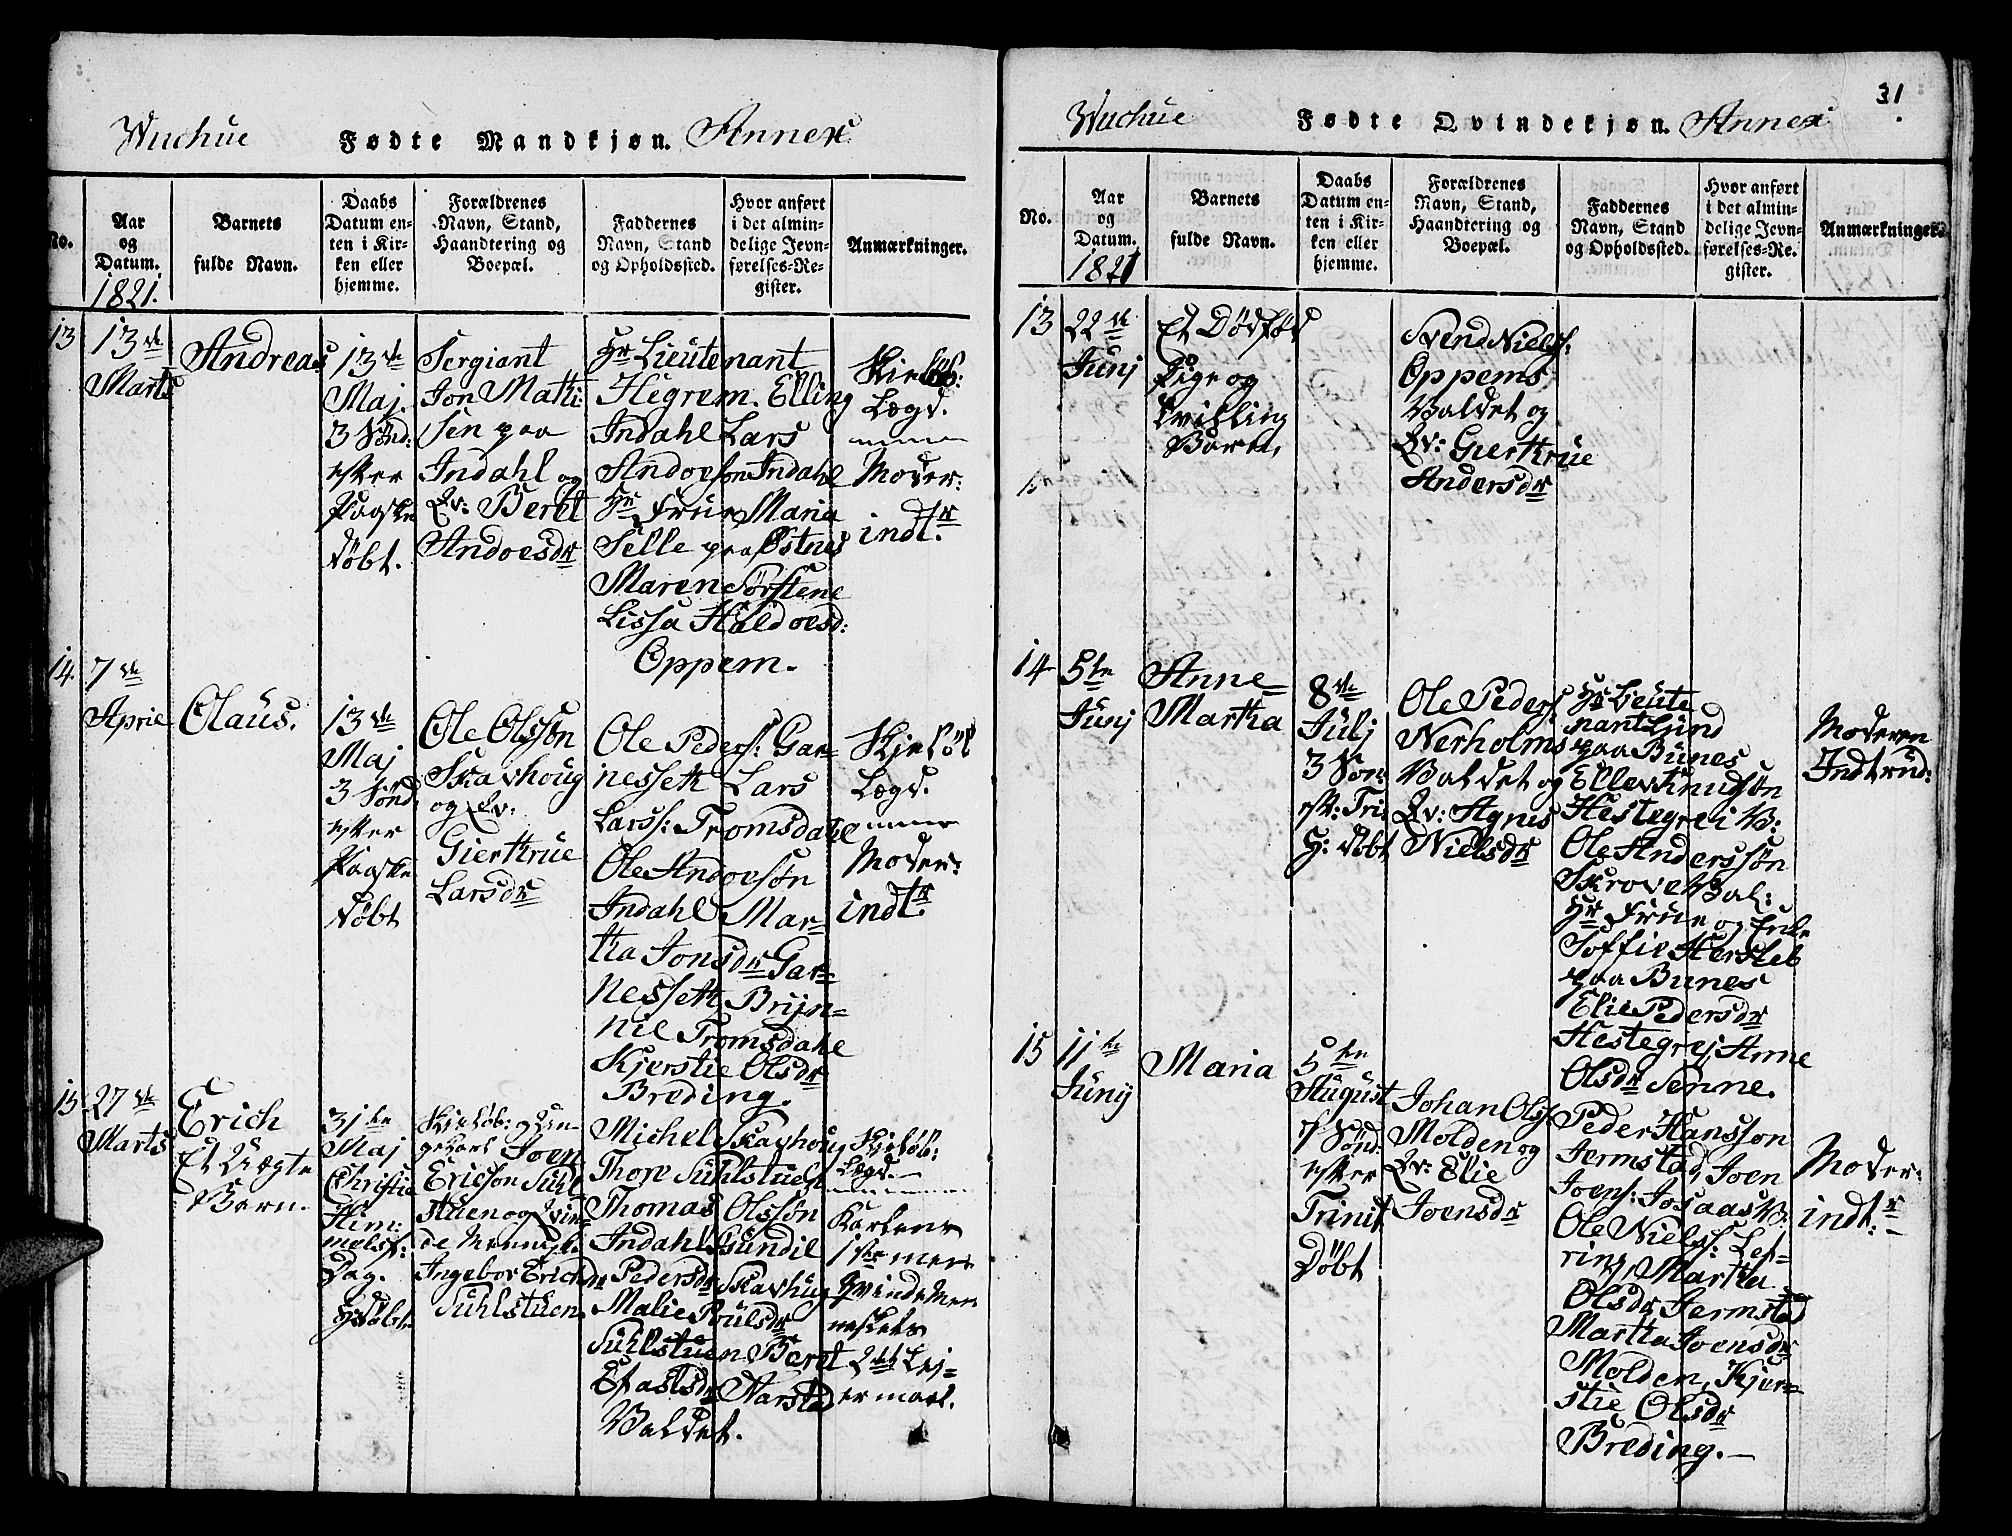 Wuchue Fødte Mandkjøn. Annex
No.
Aar og Datum. 1821.
Barnets fulde Navn.
Daabs Datum enten i Kirken eller hjemme.
Forældrenes Navn, Stand, Haandtering og Boepæl.
Faddernes Navn, Stand og Opholdssted.
Hvor anført i det almindelige Jevnførelses-Register.
Anmærkninger.
13
13de
Marts
Andreas
13de
Maj.
3 Sønd:
efter
Paaske
døbt.
Sergiant
Jon Mathi
sen paa
Indahl og
Qv: Beret
Andoesdr
Hr Lieutenant
Hegrem. Elling
Indahl Lars
Andoesøn Indahl
Hr Frue Maria
Selle paa Østnes
Maren Sørstene
Lissa Haldoesd:
Oppem.
Lægd.
Moder:
indtr.
14.
7de
April
Olaus.
13de
Maj
3 Sønd.
efter
Paaske
døbt
Ole Olssøn
Skavhoug
og Qv:
Giertrue
Larsdr
Ole Peders: Gar-
nessett Lars
Larss: Tromsdahl
Ole Andoesøn
Indahl Mar-
tha Jonsdr Gar-
nessett Brijn-
nil Tromsdahl
Kjerstie Olsdr
Breding.
Skjeløb
Lægd.
Moder:
indtr.
15
27de
Marts
Erich
Et Uægte
Barn.
31te
Maj
Christie
Him:
melsf:
Dag.
Hdøbt.
Joen
Ericson Suhl
stuen og Qvin-
de Mennske
Ingebor Erichdr
Suhlstuen
Michel Skavhoug
Thore Suhlstuen
Thomas Olssøn
Indahl Gundil
Pedersdr Skavhug
Malie Poulsdr
Suhlstuen Beret
Efastsdr Aarstad
Valdet.
Skieløb:
Lægd.
Karlens
1ste men
Qvindemen
neskets
2det Lej-
ermaal.
31
Wuchue Fødte Qvindekjøn. Annex
No.
Aar og Datum. 1821
Barnets fulde Navn.
Daabs Datum enten i Kirken eller hjemme.
Forældrenes Navn, Stand, Haandtering og Boepæl.
Faddernes Navn, Stand og Opholdssted.
Hvor anført i det almindelige Jevnførelses-Register.
Anmærkninger.
13
22de
Junj
Et Dødfød
Pige og
Tvilling
Barn,
Svend Niels:
Oppems
Valdet og
Qv: Giertrue
Andersdr
14
5te
Junj
Anne-
Martha
8de
Julj
3 Søn:
eft: Tri:
H: døbt
Ole Peders
Nerholms
Valdet og
Qv: Agnes
Nielsdr
Hr Lieute
nant Lund
paa Bunes
Ellev Knudsøn
Hestegrei V:
Ole Anderssøn
Skrove Val:
Hr Frue og
Soffie Hersleb
paa Bunes
Elie Pedersdr
Hestegrej Anne
Olsdr Senne.
Moderen
Indtrud:
15
11te
Junij
Maria
5te
August
7 Sønd:
efter
Trinit
Døbt
Johan Ols
Molden og
Qv: Elie
Joensdr
Peder Hansson
Jermstad, Joen
Joens: Josaas V:
Ole Niels: Lef-
ring, Martha
Olsdr Jermstad
Martha Joensdr
Molden, Kjer-
stie Olsdr
Breding.
Moder:
indtr.